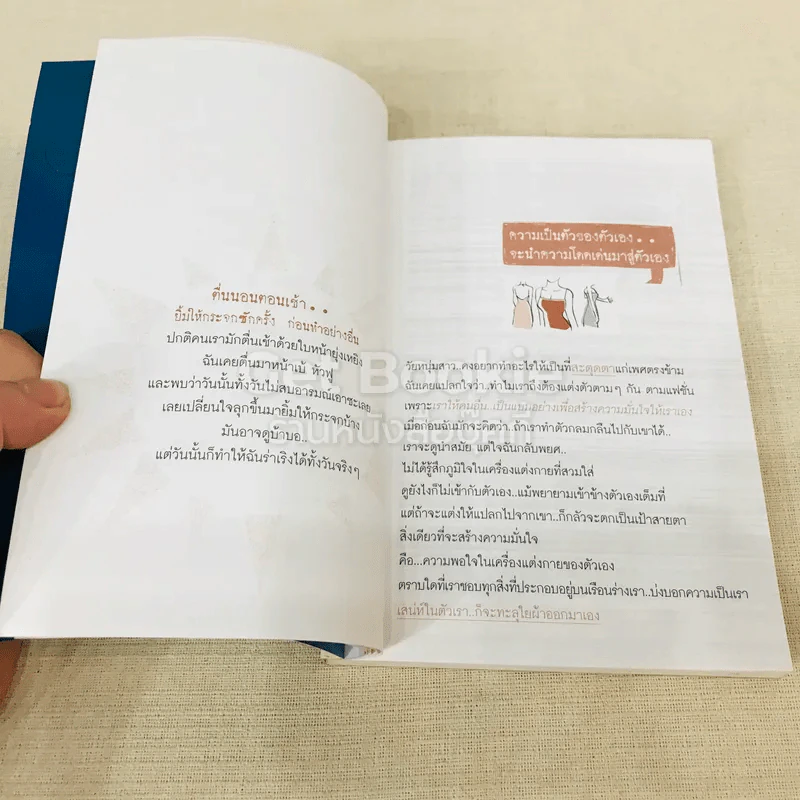 ตื่นนอนตอนเช้า..
ยิ้มให้กระจกซักครั้ง ก่อนทำอย่างอื่น
ปกติคนเรามักตื่นเช้าด้วยใบหน้ายุ่งเหยิง
ฉันเคยตื่นมาหน้าเน้ หัวฟู
และพบว่าวันนั้นทั้งวันไม่สบอารมณ์เอาซะเลย
เลยเปลี่ยนใจลุกขึ้นมายิ้มให้กระจกบ้าง
มันอาจดูบ้าบอ..
แต่วันนั้นก็ทำให้ฉันร่าเริงได้ทั้งวันจริงๆ
ความเป็นตัวของตัวเอง..
จะนำความโดดเด่นมาสู่ตัวเอง
วัยหนุ่มสาว..คงอยากทำอะไรให้เป็นที่สะดุดตาแก่เพศตรงข้าม
ฉันเคยแปลกใจว่า..ทำไมเราถึงต้องแต่งตัวตามๆ กัน ตามแฟชั่น
เพราะเราให้คนอื่น..เป็นแบบอย่างเพื่อสร้างความมั่นใจให้เราเอง
เมื่อก่อนฉันมักจะคิดว่า..ถ้าเราทำตัวกลมกลืนไปกับเขาได้..
เราจะดูนำสมัย แต่ใจฉันกลับพยศ..
ไม่ได้รู้สึกภูมิใจในเครื่องแต่งกายที่สวมใส่
ดูยังไงก็ไม่เข้ากับตัวเอง..แม้พยายามเข้าข้างตัวเองเต็มที่
แต่ถ้าจะแต่งให้แปลกไปจากเขา..ก็กลัวจะตกเป็นเป้าสายตา
สิ่งเดียวที่จะสร้างความมั่นใจ
คือ...ความพอใจในเครื่องแต่งกายของตัวเอง
ตราบใดที่เราชอบทุกสิ่งที่ประกอบอยู่บนเรือนร่างเรา..บ่งบอกความเป็นเรา
เสน่ห์ในตัวเรา..ก็จะทะลุใยผ้าออกมาเอง